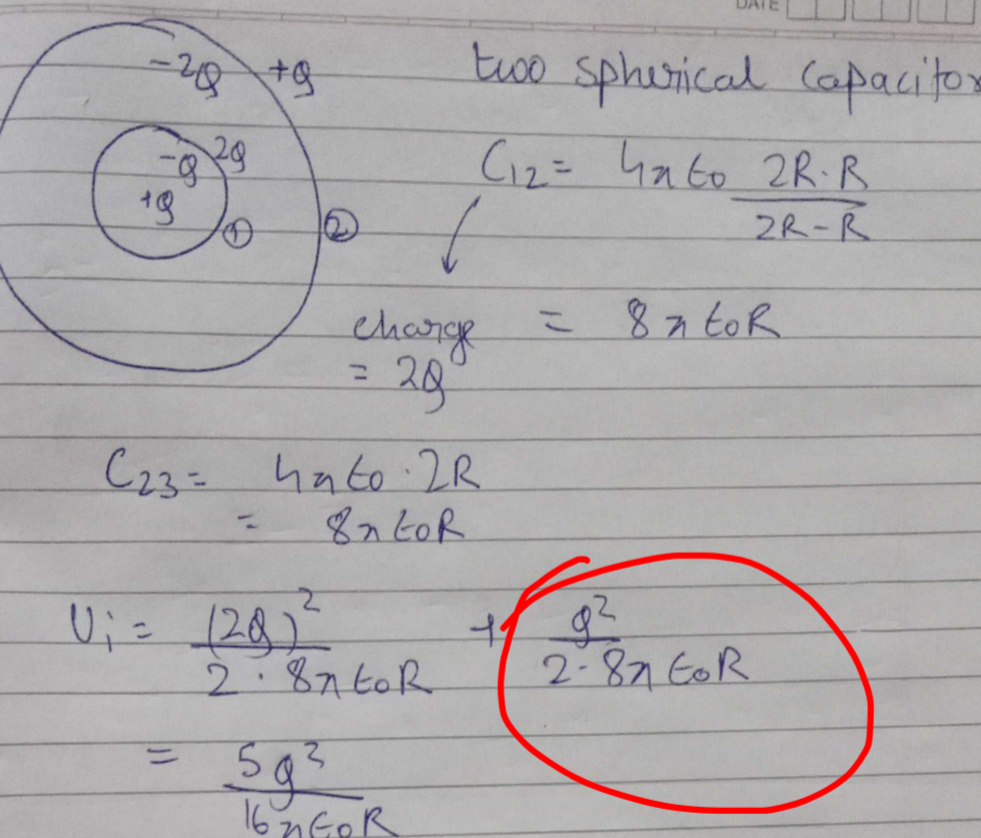 DATE
-2Q +Q
two spherical capacitor
-Q 2Q
+Q
① ②
C12 = 4π ε0 2R·R / 2R-R
charge = 8π ε0 R
= 2Q
C23 = 4π ε0 · 2R
= 8π ε0 R
Ui = (2Q)² / 2 · 8π ε0 R + Q² / 2 · 8π ε0 R
= 5Q² / 16π ε0 R